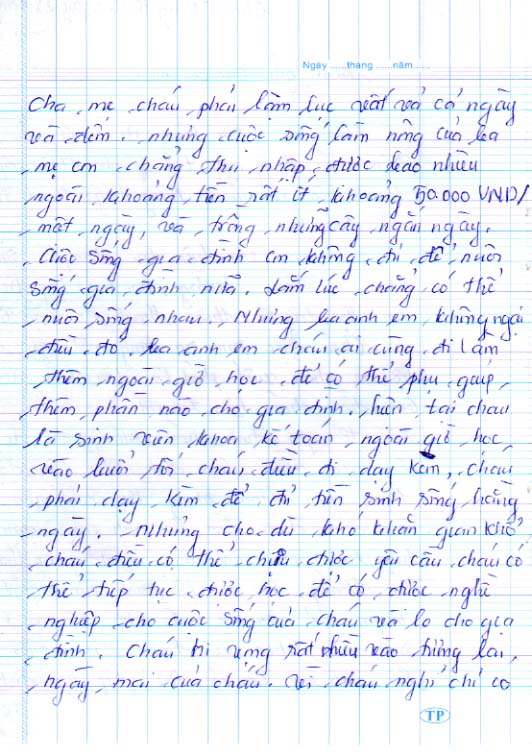 Ngày ...... tháng ...... năm ......
Cha mẹ cháu phải làm lục vất vả cả ngày
và đêm. nhưng cuộc sống làm nông của ba
mẹ em chẳng thu nhập được bao nhiêu
ngoài khoảng tiền rất ít khoảng 50.000 VNĐ/
một ngày, và trồng những cây ngắn ngày.
Cuộc sống gia đình em không đủ để nuôi
sống gia đình nữa. Lắm lúc chẳng có thể
nuôi sống nhau. Nhưng ba anh em không ngại
điều đó. ba anh em cháu ai cũng đi làm
thêm ngoài giờ học để có thể phụ giúp
thêm phần nào cho gia đình. hiện tại cháu
là sinh viên khoa kế toán ngoài giờ học
vào buổi tối cháu điều đi dạy kèm, cháu
phải dạy kèm để đủ tiền sinh sống hằng
ngày. Nhưng cho dù khó khăn gian khổ
cháu điều có thể chịu được yêu cầu cháu có
thể tiếp tục được học để có được nghề
nghiệp cho cuộc sống của cháu và lo cho gia
đình. Cháu hi vọng rất nhiều vào tương lai,
ngày mai của cháu. Vì cháu nghĩ chỉ có
TP